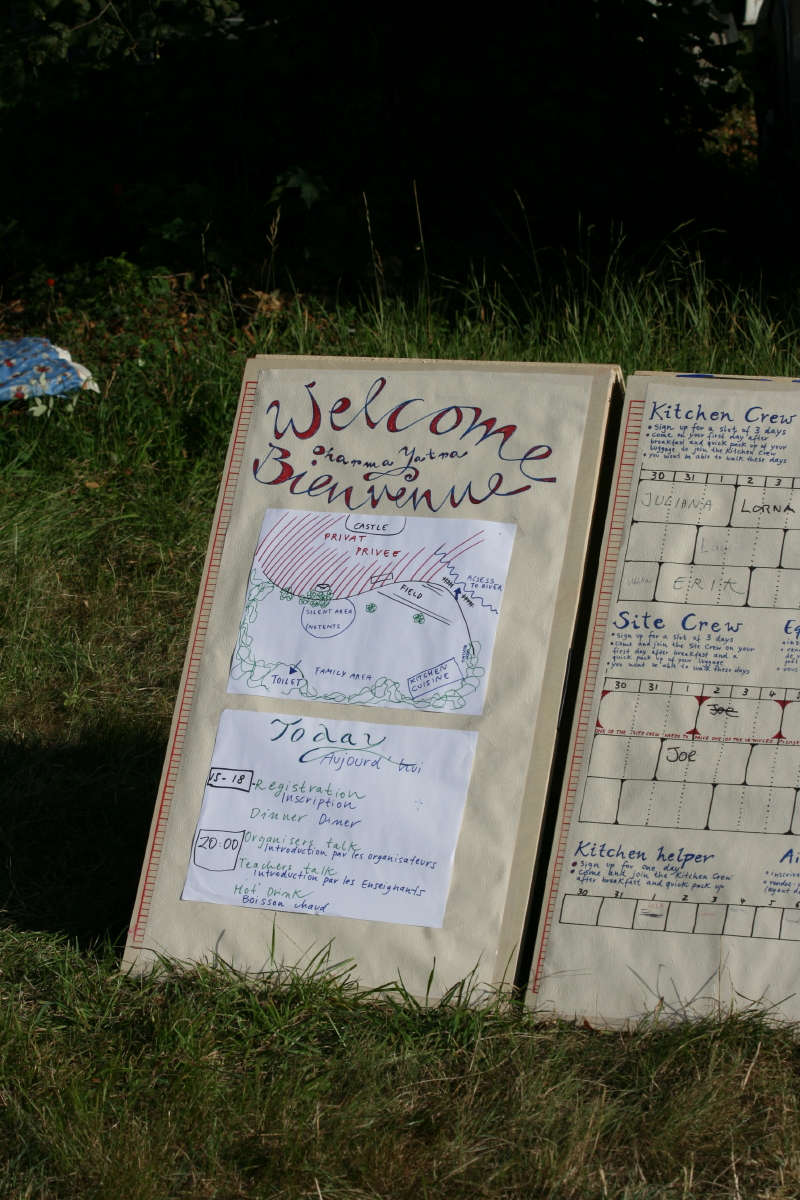 Welcome
Dharma Yatra
Bienvenue
CASTLE
PRIVAT
PRIVEE
ACSESS
TO RIVER
FIELD
SILENT AREA
IN TENTS
FAMILY AREA
TOILET
KITCHEN
CUISINE
Today
Aujourd'hui
15-18
Registration
Inscription
Dinner Diner
20:00
Organisers talk
Introduction par les organisateurs
Teachers talk
Introduction par les Enseignants
Hot Drink
Boisson chaud
Kitchen Crew
• Sign up for a slot of 3 days
• come on your first day after
breakfast and quick pack up of your
luggage to join the Kitchen Crew
• you wont be able to walk these days
30 31 1 2 3
JULIANA LORNA
ERIK
Site Crew
• Sign up for a slot of 3 days
• Come and join the Site Crew on your
first day after breakfast and a
quick pack up of your luggage
• you wont be able to walk these days
30 31 1 2 3 4
Joe
ONE OF THE SITE CREW NEEDS TO DRIVE ONE OF THE VEHICLES. PLEASE
Joe
Kitchen helper
• Sign up for one day
• Come and join the Kitchen Crew
after breakfast and quick pack up
30 31 1 2 3 4 5